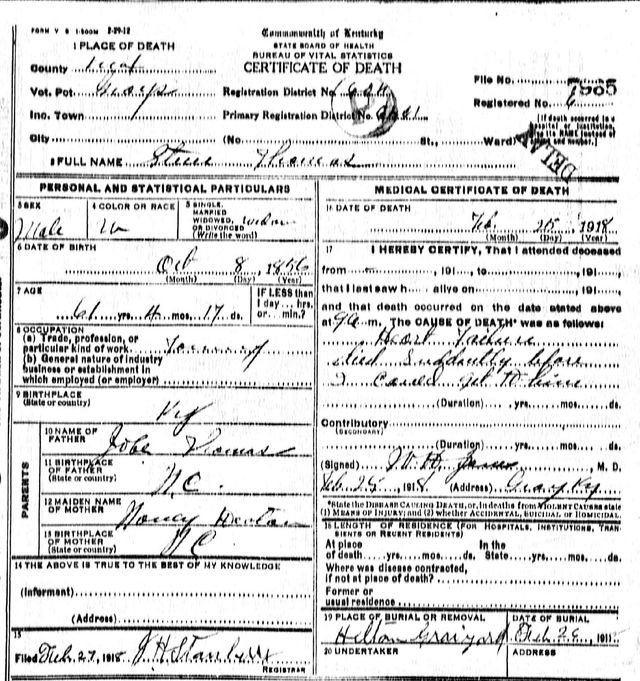 FORM V S 1-500M 2-29-12
Commonwealth of Kentucky
STATE BOARD OF HEALTH
BUREAU OF VITAL STATISTICS
CERTIFICATE OF DEATH
1 PLACE OF DEATH
County
Vot. Pct Grays
Inc. Town
City
Registration District No.
Primary Registration District No.
(No. St., Ward)
File No. 7985
Registered No. 6
(If death occurred in a hospital or institution, give its NAME instead of street and number.)
DELAYED
2 FULL NAME Steve Thomas
PERSONAL AND STATISTICAL PARTICULARS
3 SEX
Male
4 COLOR OR RACE
W
5 SINGLE, MARRIED WIDOWED, OR DIVORCED (Write the word)
6 DATE OF BIRTH
Oct 8, 1856
(Month) (Day) (Year)
7 AGE
61 yrs. 4 mos. 17 ds.
IF LESS than 1 day ... hrs. or ... min.?
8 OCCUPATION
(a) Trade, profession, or particular kind of work
(b) General nature of industry business or establishment in which employed (or employer)
Farming
9 BIRTHPLACE
(State or country)
Ky
PARENTS
10 NAME OF FATHER
Jobe Thomas
11 BIRTHPLACE OF FATHER
(State or country)
N C.
12 MAIDEN NAME OF MOTHER
Nancy
13 BIRTHPLACE OF MOTHER
(State or country)
N C
14 THE ABOVE IS TRUE TO THE BEST OF MY KNOWLEDGE
(Informant)
(Address)
15
Filed Feb. 27, 1918 J H Stanbery
REGISTRAR
MEDICAL CERTIFICATE OF DEATH
16 DATE OF DEATH
Feb. 25, 1918
(Month) (Day) (Year)
17 I HEREBY CERTIFY, That I attended deceased
from , 191 , to , 191
that I last saw h alive on , 191
and that death occurred on the date stated above
at 9 a m. The CAUSE OF DEATH* was as follows:
Heart Failure
died Suddently before
I get
(Duration) yrs. mos. ds.
Contributory
(SECONDARY)
(Duration) yrs. mos. ds.
(Signed) W. H. M. D.
Feb. 25, 1918 (Address) Gray Ky
*State the DISEASE CAUSING DEATH, or, in deaths from VIOLENT CAUSES state (1) MEANS OF INJURY; and (2) whether ACCIDENTAL, SUICIDAL or HOMICIDAL.
18 LENGTH OF RESIDENCE (FOR HOSPITALS, INSTITUTIONS, TRANSIENTS OR RECENT RESIDENTS)
At place of death yrs. mos. ds. In the State yrs. mos. ds.
Where was disease contracted, if not at place of death?
Former or usual residence
19 PLACE OF BURIAL OR REMOVAL
DATE OF BURIAL
Feb 26, 1918
20 UNDERTAKER
ADDRESS